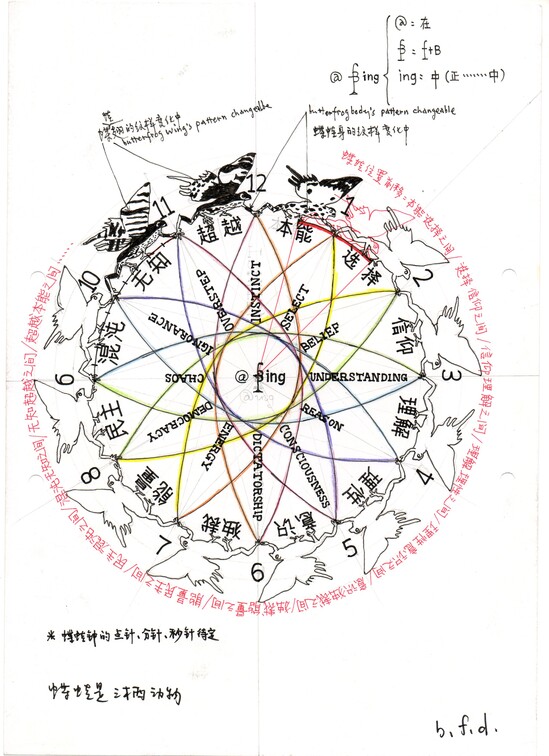 @ = 在
= f+B
@ ing
ing = 中 (正……中)
butterfrog wing's pattern changeable
butterfrogbody's pattern changeable
蝶蛙身的纹样变化中
12
1
2
3
4
5
6
7
8
9
10
11
本能
选择
信仰
理解
理性
意识
独裁
能量
民主
混沌
无知
超越
INSTINCT
SELECT
BELIEF
UNDERSTANDING
REASON
CONSCIOUSNESS
DICTATORSHIP
ENERGY
DEMOCRACY
CHAOS
IGNORANCE
OVERSTEP
@ ing
本能选择之间/选择信仰之间/信仰理解之间/理解理性之间/理性意识之间/意识独裁之间/独裁能量之间/能量民主之间/民主混沌之间/混沌无知之间/无知超越之间/超越本能之间……
※ 蝶蛙钟的点针、分针、秒针待定
蝶蛙是三栖动物
b.f.d.